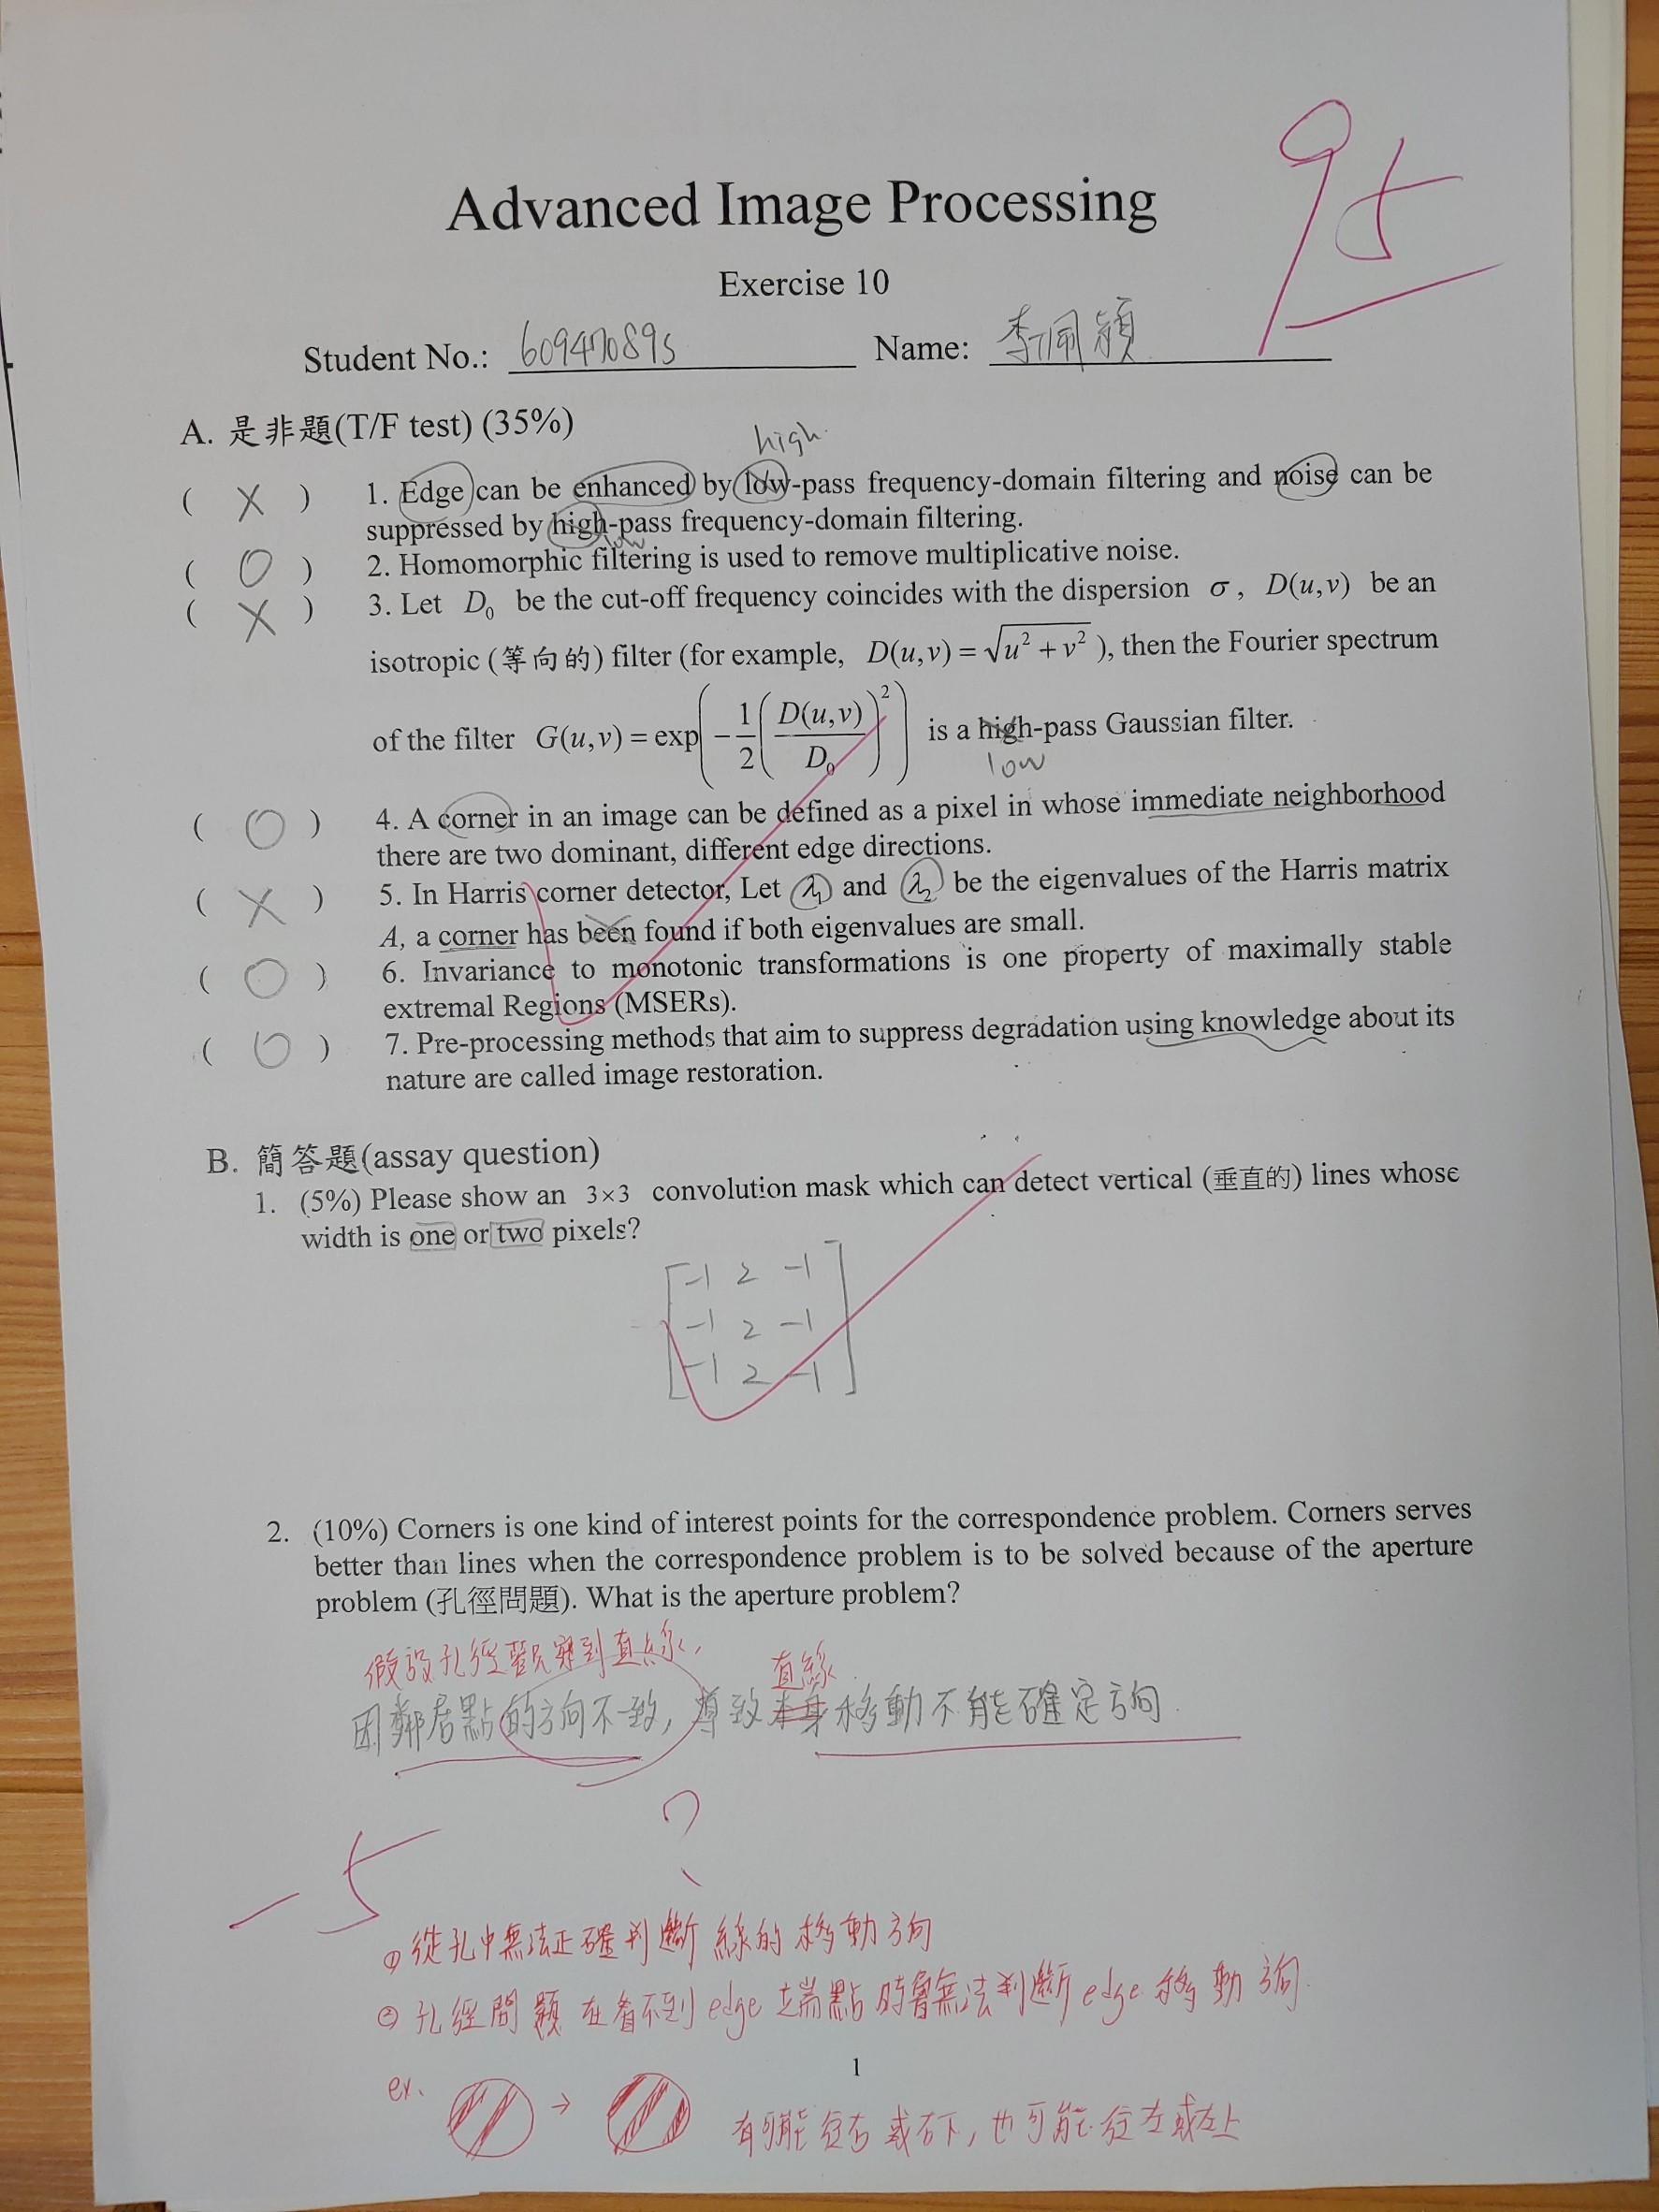 95
Advanced Image Processing
Exercise 10
Student No.: 60947089s Name: 李佩穎
A. 是非題(T/F test) (35%)
high
( X ) 1. Edge can be enhanced by low-pass frequency-domain filtering and noise can be
suppressed by high-pass frequency-domain filtering.
low
( O ) 2. Homomorphic filtering is used to remove multiplicative noise.
( X ) 3. Let D₀ be the cut-off frequency coincides with the dispersion σ, D(u,v) be an
isotropic (等向的) filter (for example, D(u,v) = √(u² + v²) ), then the Fourier spectrum
of the filter G(u,v) = exp(−1/2(D(u,v)/D₀)²) is a high-pass Gaussian filter.
low
( O ) 4. A corner in an image can be defined as a pixel in whose immediate neighborhood
there are two dominant, different edge directions.
( X ) 5. In Harris corner detector, Let λ₁ and λ₂ be the eigenvalues of the Harris matrix
A, a corner has been found if both eigenvalues are small.
( O ) 6. Invariance to monotonic transformations is one property of maximally stable
extremal Regions (MSERs).
( O ) 7. Pre-processing methods that aim to suppress degradation using knowledge about its
nature are called image restoration.
B. 簡答題(assay question)
1. (5%) Please show an 3×3 convolution mask which can detect vertical (垂直的) lines whose
width is one or two pixels?
-1 2 -1
-1 2 -1
-1 2 -1
2. (10%) Corners is one kind of interest points for the correspondence problem. Corners serves
better than lines when the correspondence problem is to be solved because of the aperture
problem (孔徑問題). What is the aperture problem?
假設孔徑觀察到直線, 直線
因鄰居點的方向不一致, 導致本身移動不能確定方向.
?
-5
① 從孔中無法正確判斷線的移動方向
② 孔徑問題在看不到edge端點時會無法判斷edge移動方向.
1
ex. → 有可能往右或右下, 也可能往左或左上